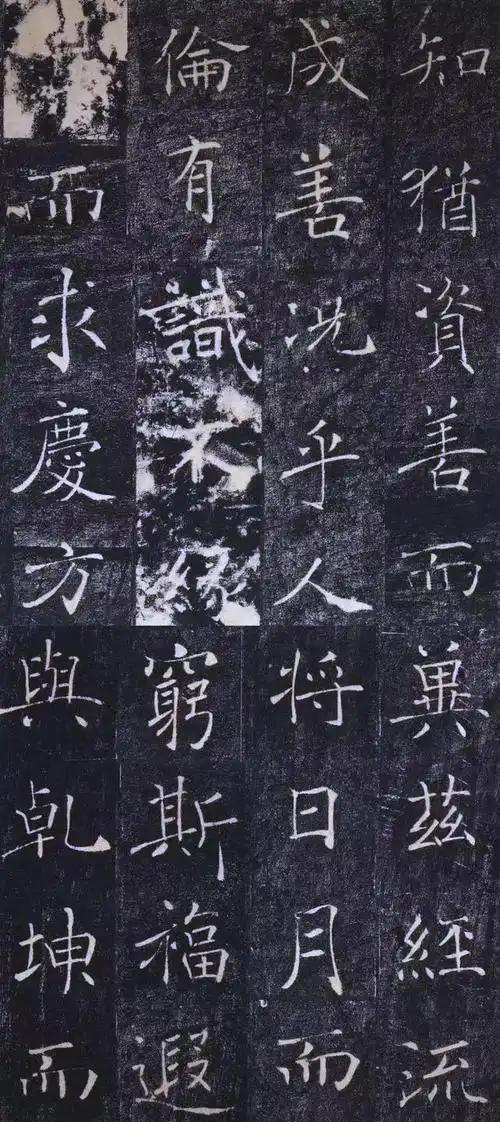 知猶資善而冀茲經流
成善况乎人將日月而
倫有識不緣窮斯福遐
而求慶方與乹坤而